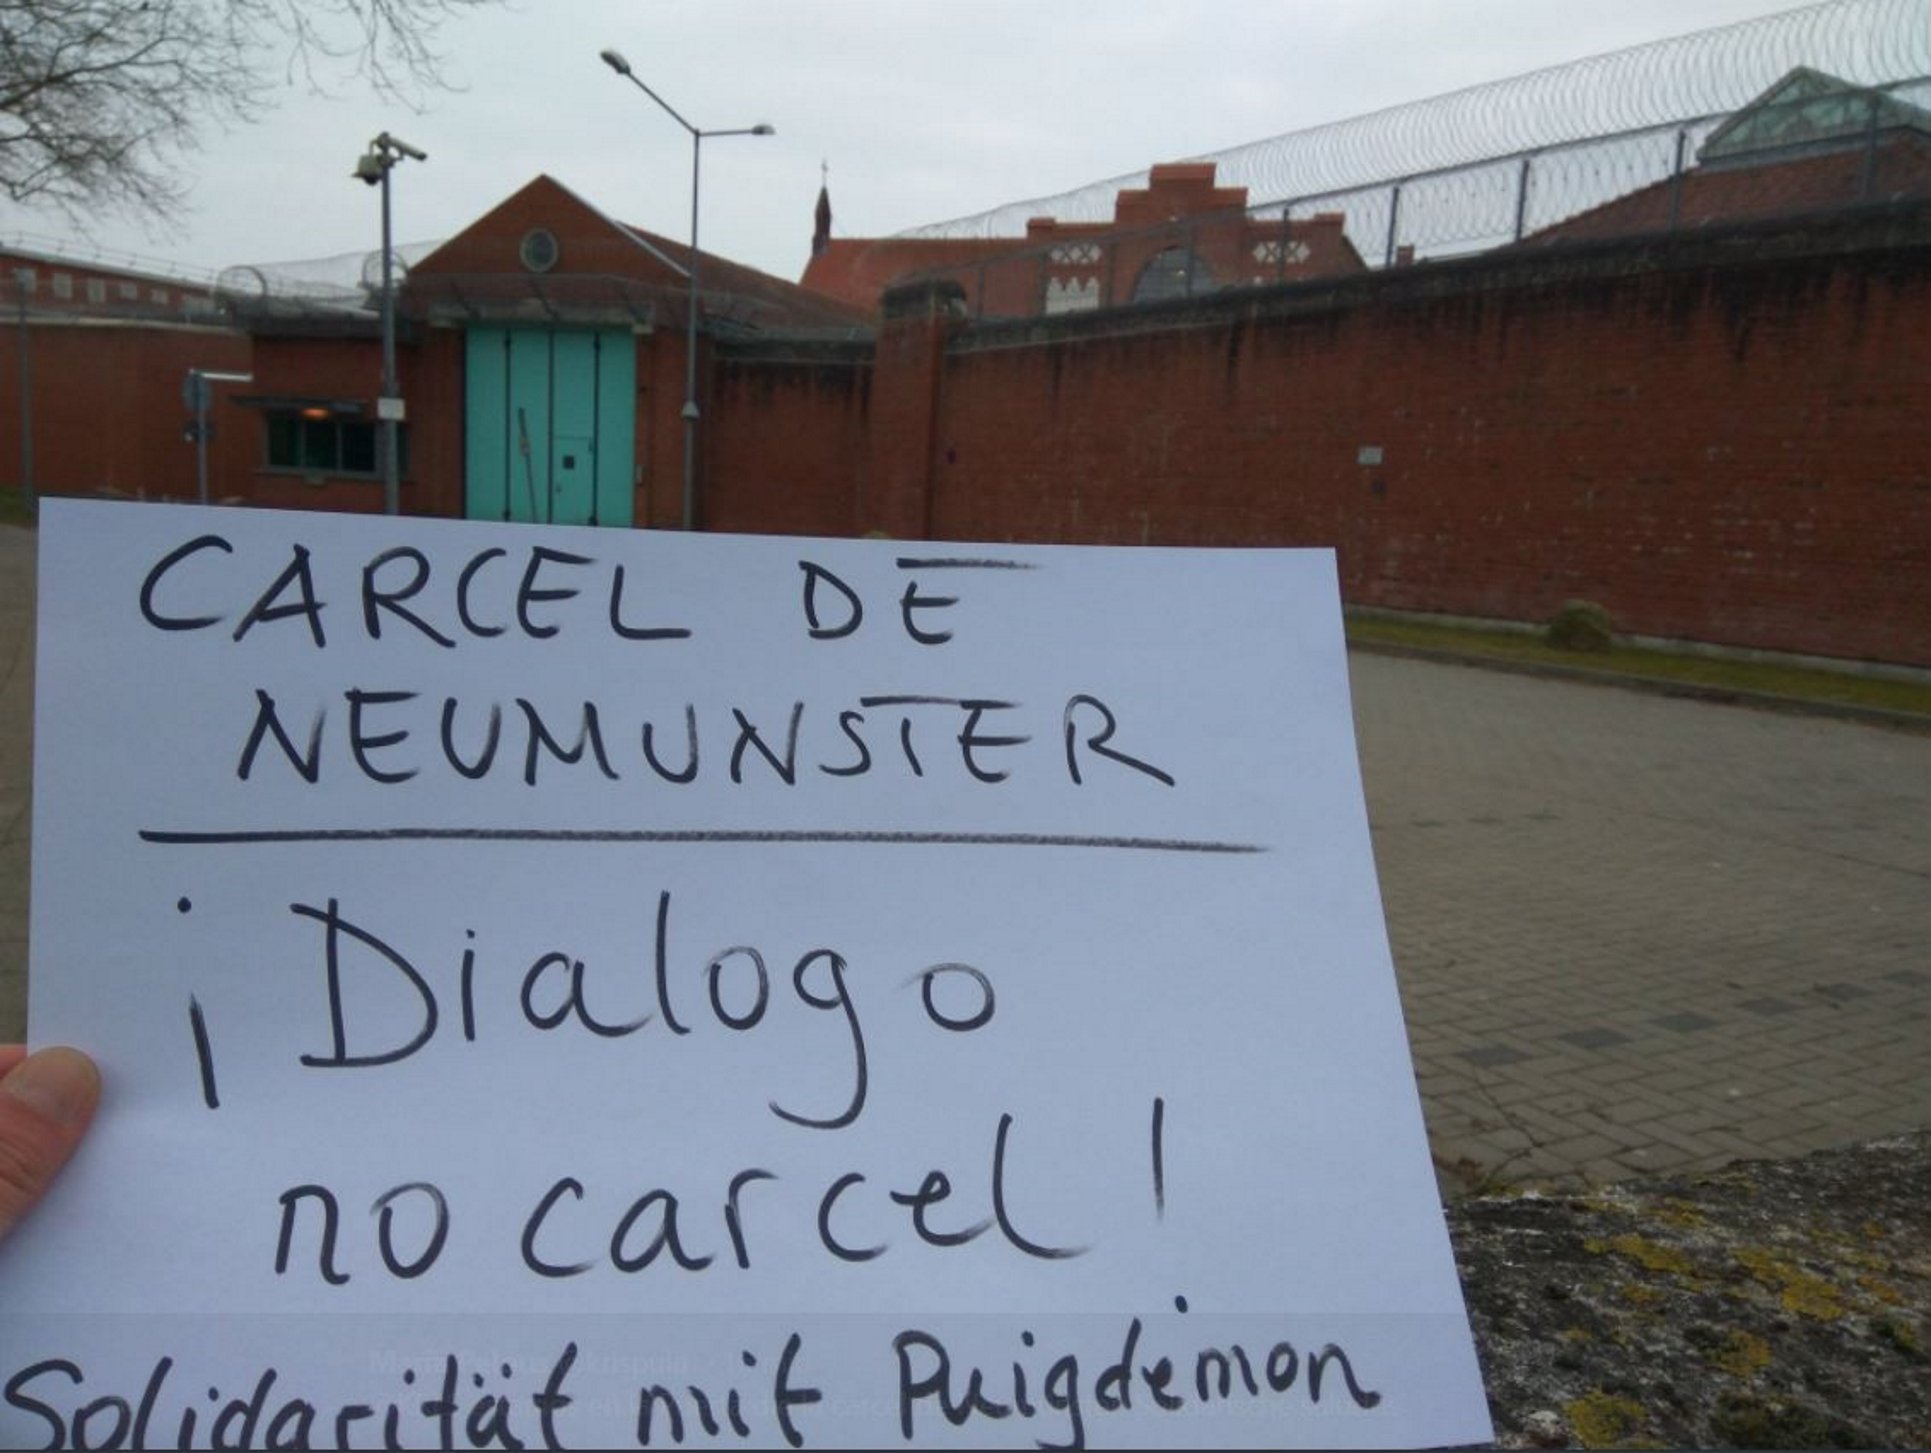 CARCEL DE
NEUMUNSTER
¡Dialogo
no carcel!
Solidarität mit Puigdemon